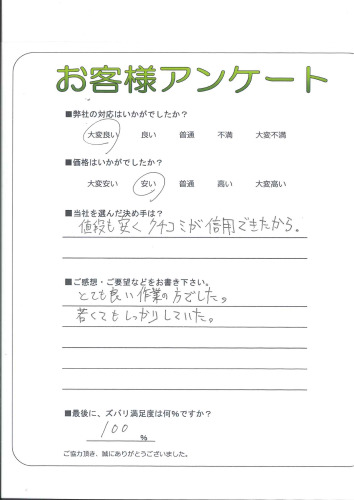 お客様アンケート
■弊社の対応はいかがでしたか?
大変良い 良い 普通 不満 大変不満
■価格はいかがでしたか?
大変安い 安い 普通 高い 大変高い
■当社を選んだ決め手は?
値段も安く クチコミが信用できたから。
■ご感想・ご要望などをお書き下さい。
とても良い作業の方でした。
若くてもしっかりしていた。
■最後に、ズバリ満足度は何%ですか?
100 %
ご協力頂き、誠にありがとうございました。